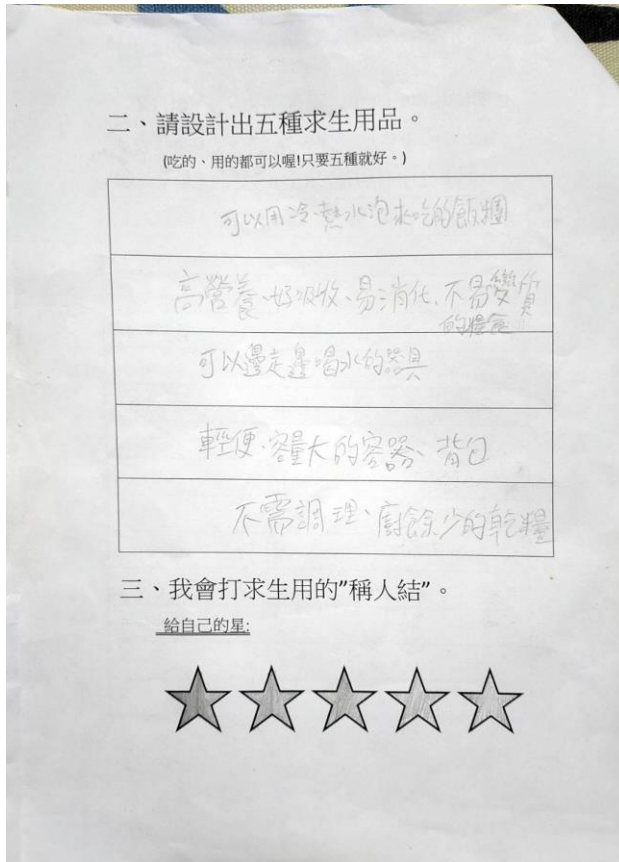 二、請設計出五種求生用品。
(吃的、用的都可以喔!只要五種就好。)
可以用冷、熱水泡來吃的飯糰
高營養、好吸收、易消化、不易變質
的糧食
可以邊走邊喝水的器具
輕便、容量大的容器、背包
不需調理、廚餘少的乾糧
三、我會打求生用的"稱人結"。
給自己的星: